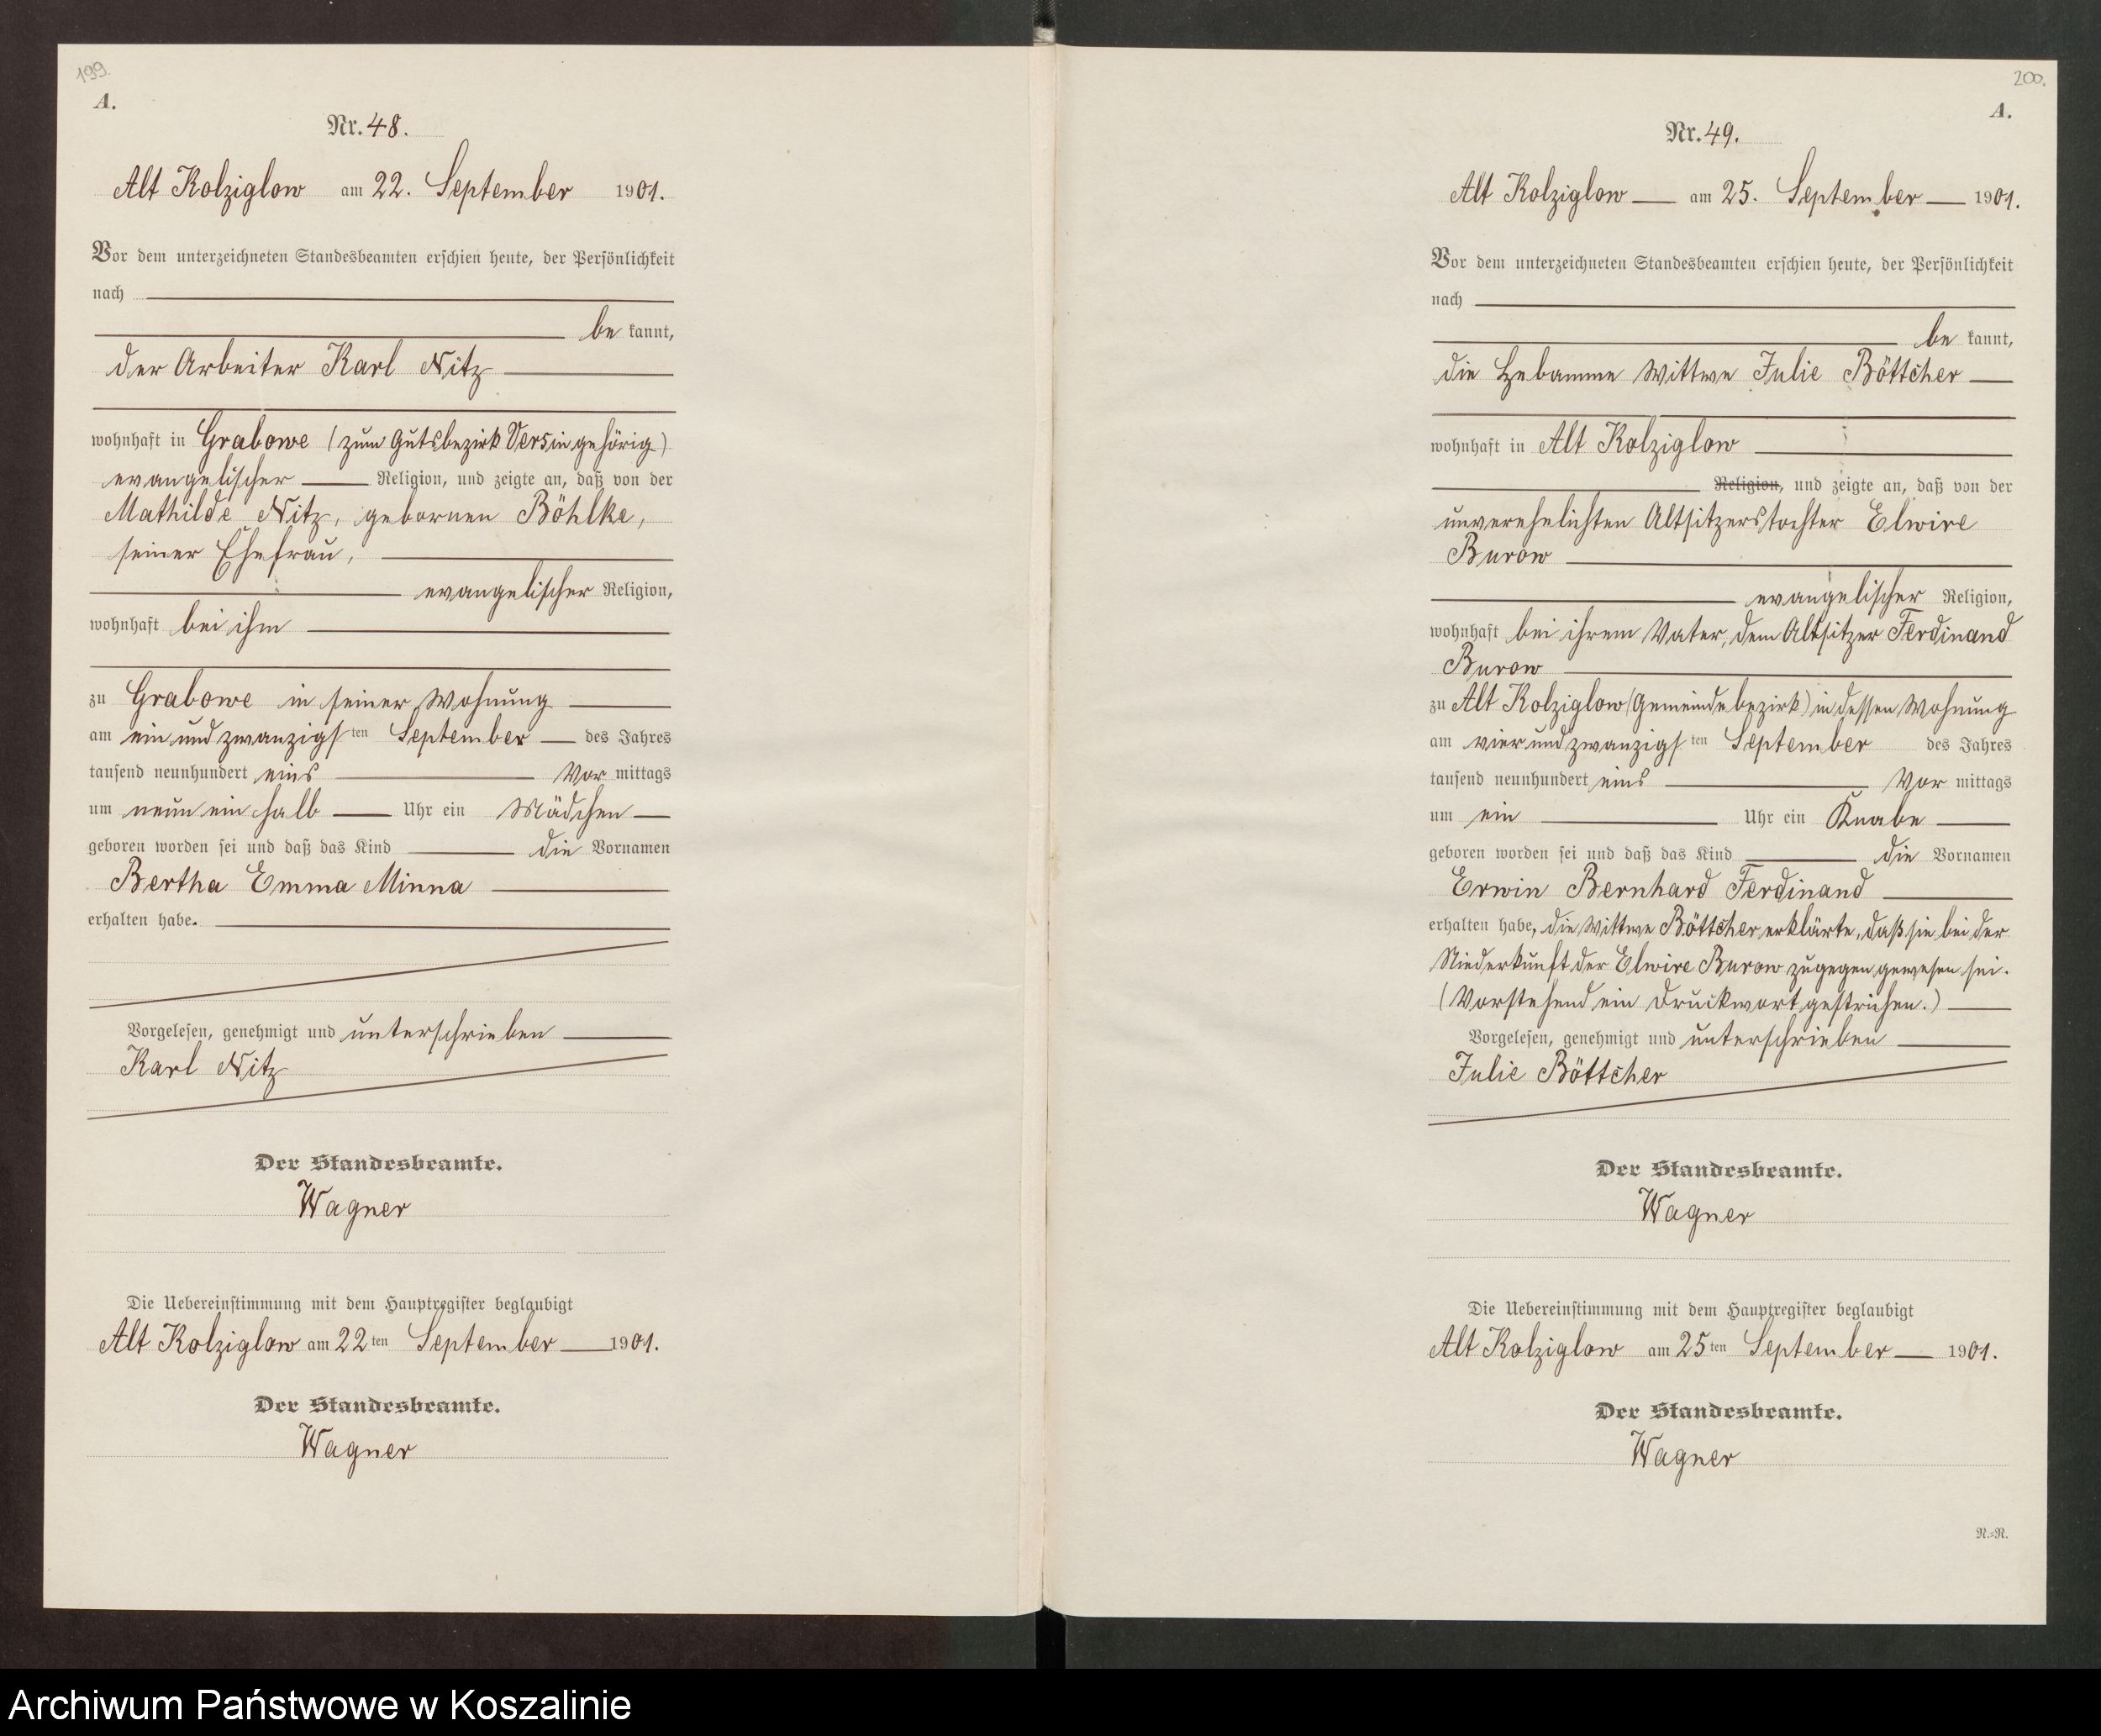 199.
A.
Nr. 48.
Alt Kolziglow am 22. September 1901.
Vor dem unterzeichneten Standesbeamten erschien heute, der Persönlichkeit
nach
be kannt,
der Arbeiter Karl Nitz
wohnhaft in Grabowe (zum Gutsbezirk Versin gehörig)
evangelischer Religion, und zeigte an, daß von der
Mathilde Nitz, gebornen Böhlke,
seiner Ehefrau,
evangelischer Religion,
wohnhaft bei ihm
zu Grabowe in seiner Wohnung
am ein und zwanzigsten September des Jahres
tausend neunhundert eins Vor mittags
um neun ein halb Uhr ein Mädchen
geboren worden sei und daß das Kind die Vornamen
Bertha Emma Minna
erhalten habe.
Vorgelesen, genehmigt und unterschrieben
Karl Nitz
Der Standesbeamte.
Wagner
Die Uebereinstimmung mit dem Hauptregister beglaubigt
Alt Kolziglow am 22ten September 1901.
Der Standesbeamte.
Wagner
200.
A.
Nr. 49.
Alt Kolziglow am 25. September 1901.
Vor dem unterzeichneten Standesbeamten erschien heute, der Persönlichkeit
nach
be kannt,
die Hebamme Wittwe Julie Böttcher
wohnhaft in Alt Kolziglow
Religion, und zeigte an, daß von der
unverehelichten Altsitzerstochter Elwire
Burow
evangelischer Religion,
wohnhaft bei ihrem Vater, dem Altsitzer Ferdinand
Burow
zu Alt Kolziglow (Gemeindebezirk) in dessen Wohnung
am vier und zwanzigsten September des Jahres
tausend neunhundert eins Vor mittags
um ein Uhr ein Knabe
geboren worden sei und daß das Kind die Vornamen
Erwin Bernhard Ferdinand
erhalten habe, die Wittwe Böttcher erklärte, daß sie bei der
Niederkunft der Elwire Burow zugegen gewesen sei.
(Vorstehend ein Druckwort gestrichen.)
Vorgelesen, genehmigt und unterschrieben
Julie Böttcher
Der Standesbeamte.
Wagner
Die Uebereinstimmung mit dem Hauptregister beglaubigt
Alt Kolziglow am 25ten September 1901.
Der Standesbeamte.
Wagner
N.=R.
Archiwum Państwowe w Koszalinie